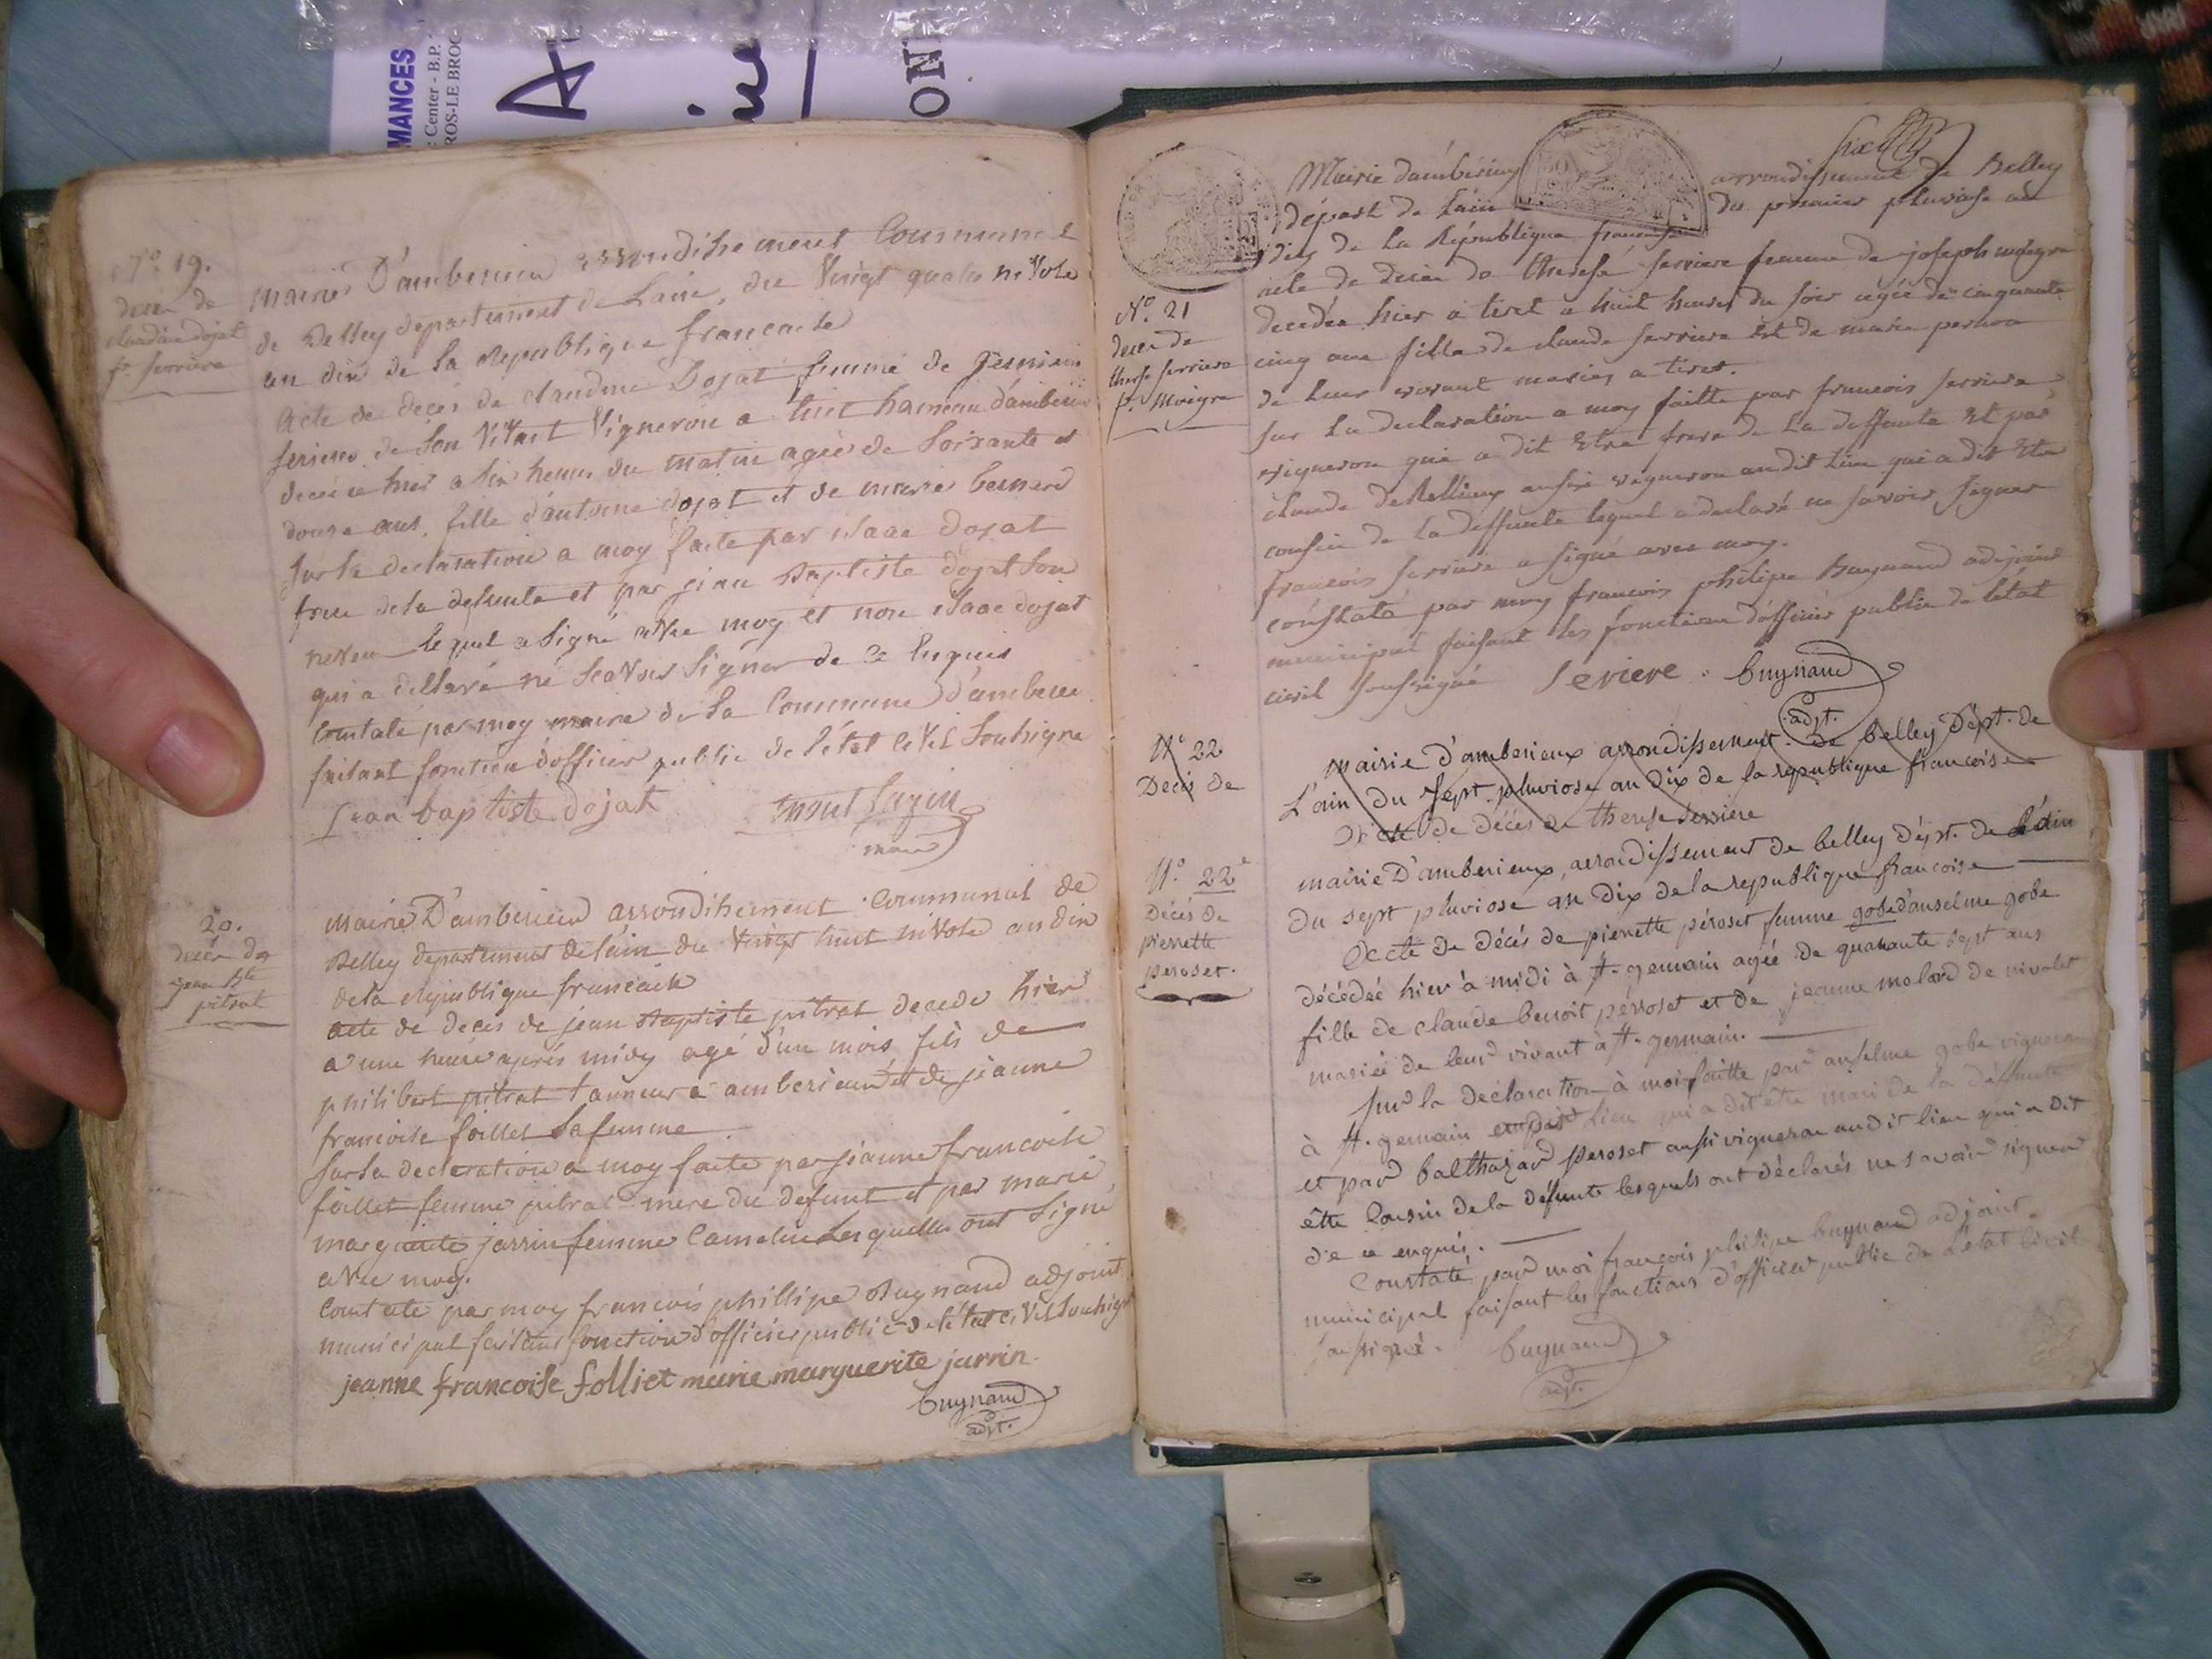 MANCES
Center - B.P.
ROS-LE BROC
ON
N° 19.
décès de
claudine dojat
f.e serriere
mairie D'amberieux arrondissement Communal
de Belley departement de Lain, du Vingt quatre niVose
an dix de la Republique francaise
Acte de décès de claudine Dojat femme de
feriere de son ViVant Vigneron a tiret hameau d'amberieu
decedée hier a six heures du matin agée de soixante et
douze ans, fille d'antoine dojat et de marie bernard
sur la declaration a moy faite par isaac dojat
frere de la defunte et par jean Baptiste dojat son
neveu lequel a signé avec moy et non isaac dojat
qui a déllaré ne scaVoir signer de ce enquis
constaté par moy maire de la Commune d'amberieu
faisant fonction d'officier public de l'état ciVil soussigné
jean baptiste dojat
maire
20.
décès de
jean Bte
pitrat
mairie D'amberieux arrondissement Communal de
Belley departement de l'ain du Vingt huit niVose an dix
de la republique francaise
acte de deces de jean Baptiste pitrat decedé hier
a une heure après midy agé d'un mois fils de
philibert pitrat tanneur a amberieux et de jeanne
francoise folliet sa femme
sur la declaration a moy faite par jeanne francoise
folliet femme pitrat mere du defunt et par marie
marguerite jarrin femme Camelin Lesquelles ont signé
aVec moy.
Constaté par moy francois phillipe Buynand adjoint
municipal faisant fonction d'officier public de l'état ciVil soussigné
jeanne francoise folliet marie marguerite jarrin
buynand
adjt.
Mairie d'amberieux arrondissement de Belley
départ. de Lain du premier pluviose an
dix de la République francaise
N° 21
décès de
therese serriere
fe. Moigre
acte de décès de therese serriere femme de joseph moigre
decedée hier a tiret a huit heures du soir agée de cinquante
cinq ans fille de claude serriere et de marie
de leur vivant mariés a tiret.
sur la declaration a moy faitte par francois serriere
vigneron qui a dit Etre frere de la deffunte Et par
claude deRellieux aussi vigneron audit lieu qui a dit Etre
cousin de la deffunte lequel a declaré ne savoir signer
francois serriere a signé avec moy.
constaté par moy francois philipe Buynand adjoint
municipal faisant les fonctions d'officier public de l'état
civil soussigné Seriere. buynand
adjt.
N° 22
Décès de
mairie D'amberieux arrondissement de belley Dépt. de
L'ain du sept pluviose an dix de la republique françoise
Acte de décès de therese serriere
N° 22e
Décès de
pierrette
peroset.
mairie D'amberieux, arrondissement de belley Dépt. de L'ain
du sept pluviose an Dix de la republique françoise
Acte de décès de pierrette péroset femme gobe d'anselme gobe
décédée hier à midi à st. germain agée de quarante sept ans
fille de claude benoit perroset et de jeanne molard de nivolet
mariés de leur vivant à st. germain.
sur la déclaration à moi faitte par anselme gobe vigneron
à st. germain audit lieu qui a dit être mari de la deffunte
et par balthazar peroset aussi vigneron audit lieu qui a dit
être Cousin de la défunte lesquels ont déclarés ne savoir signer
de ce enquis.
Constaté par moi françois philipe buynand adjoint
municipal faisant les fonctions d'officier public de L'état Civil
soussigné. buynand
adjt.